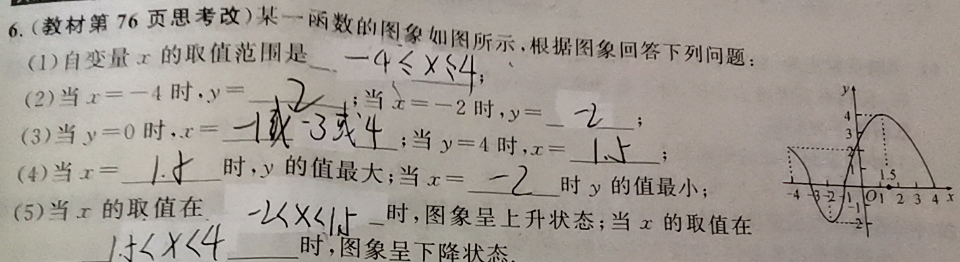 6.(教材第76页思考改)某一函数的图象如图所示,根据图象回答下列问题:
(1)自变量x的取值范围是 -4≤x≤4;
(2)当x=-4时,y= 2 ;当x=-2时,y= -2 ;
(3)当y=0时,x= -1或-3或4 ;当y=4时,x= 1.5 ;
(4)当x= 1.5 时,y的值最大;当x= -2 时y的值最小;
(5)当x的取值在 -2<x<1.5 时,图象呈上升状态;当x的取值在
1.5<x<4 时,图象呈下降状态.
y
4
3
2
1.5
-4 -3 -2 -1 O 1 2 3 4 x
-1
-2